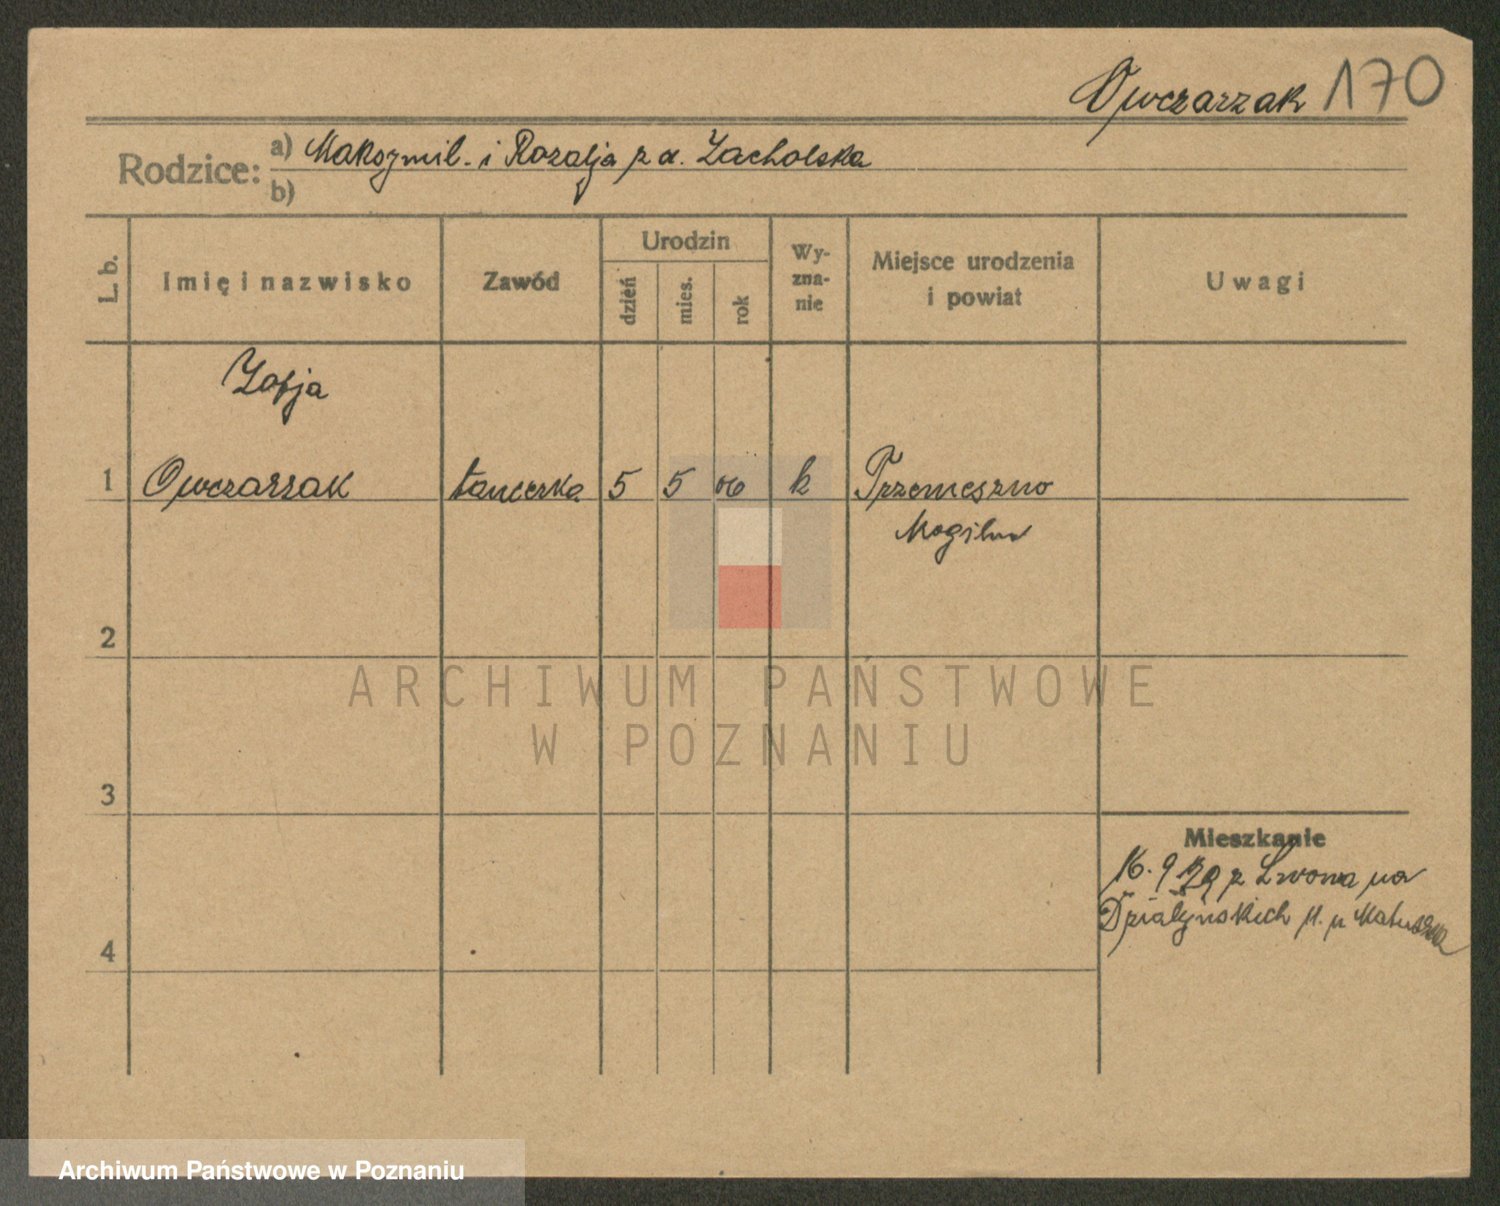 Owczarzak 170
Rodzice: a) Maksymil. i Rozalja z d. Zacholska
b)
L. b.
Imię i nazwisko
Zawód
Urodzin
dzień
mies.
rok
Wy-
zna-
nie
Miejsce urodzenia
i powiat
Uwagi
Zofja
1 Owczarzak tancerka 5 5 06 k Trzemeszno
Mogilno
2
ARCHIWUM PAŃSTWOWE
W POZNANIU
3
Mieszkanie
16. 9 29 z Lwowa na
Działyńskich 11. u
4
Archiwum Państwowe w Poznaniu